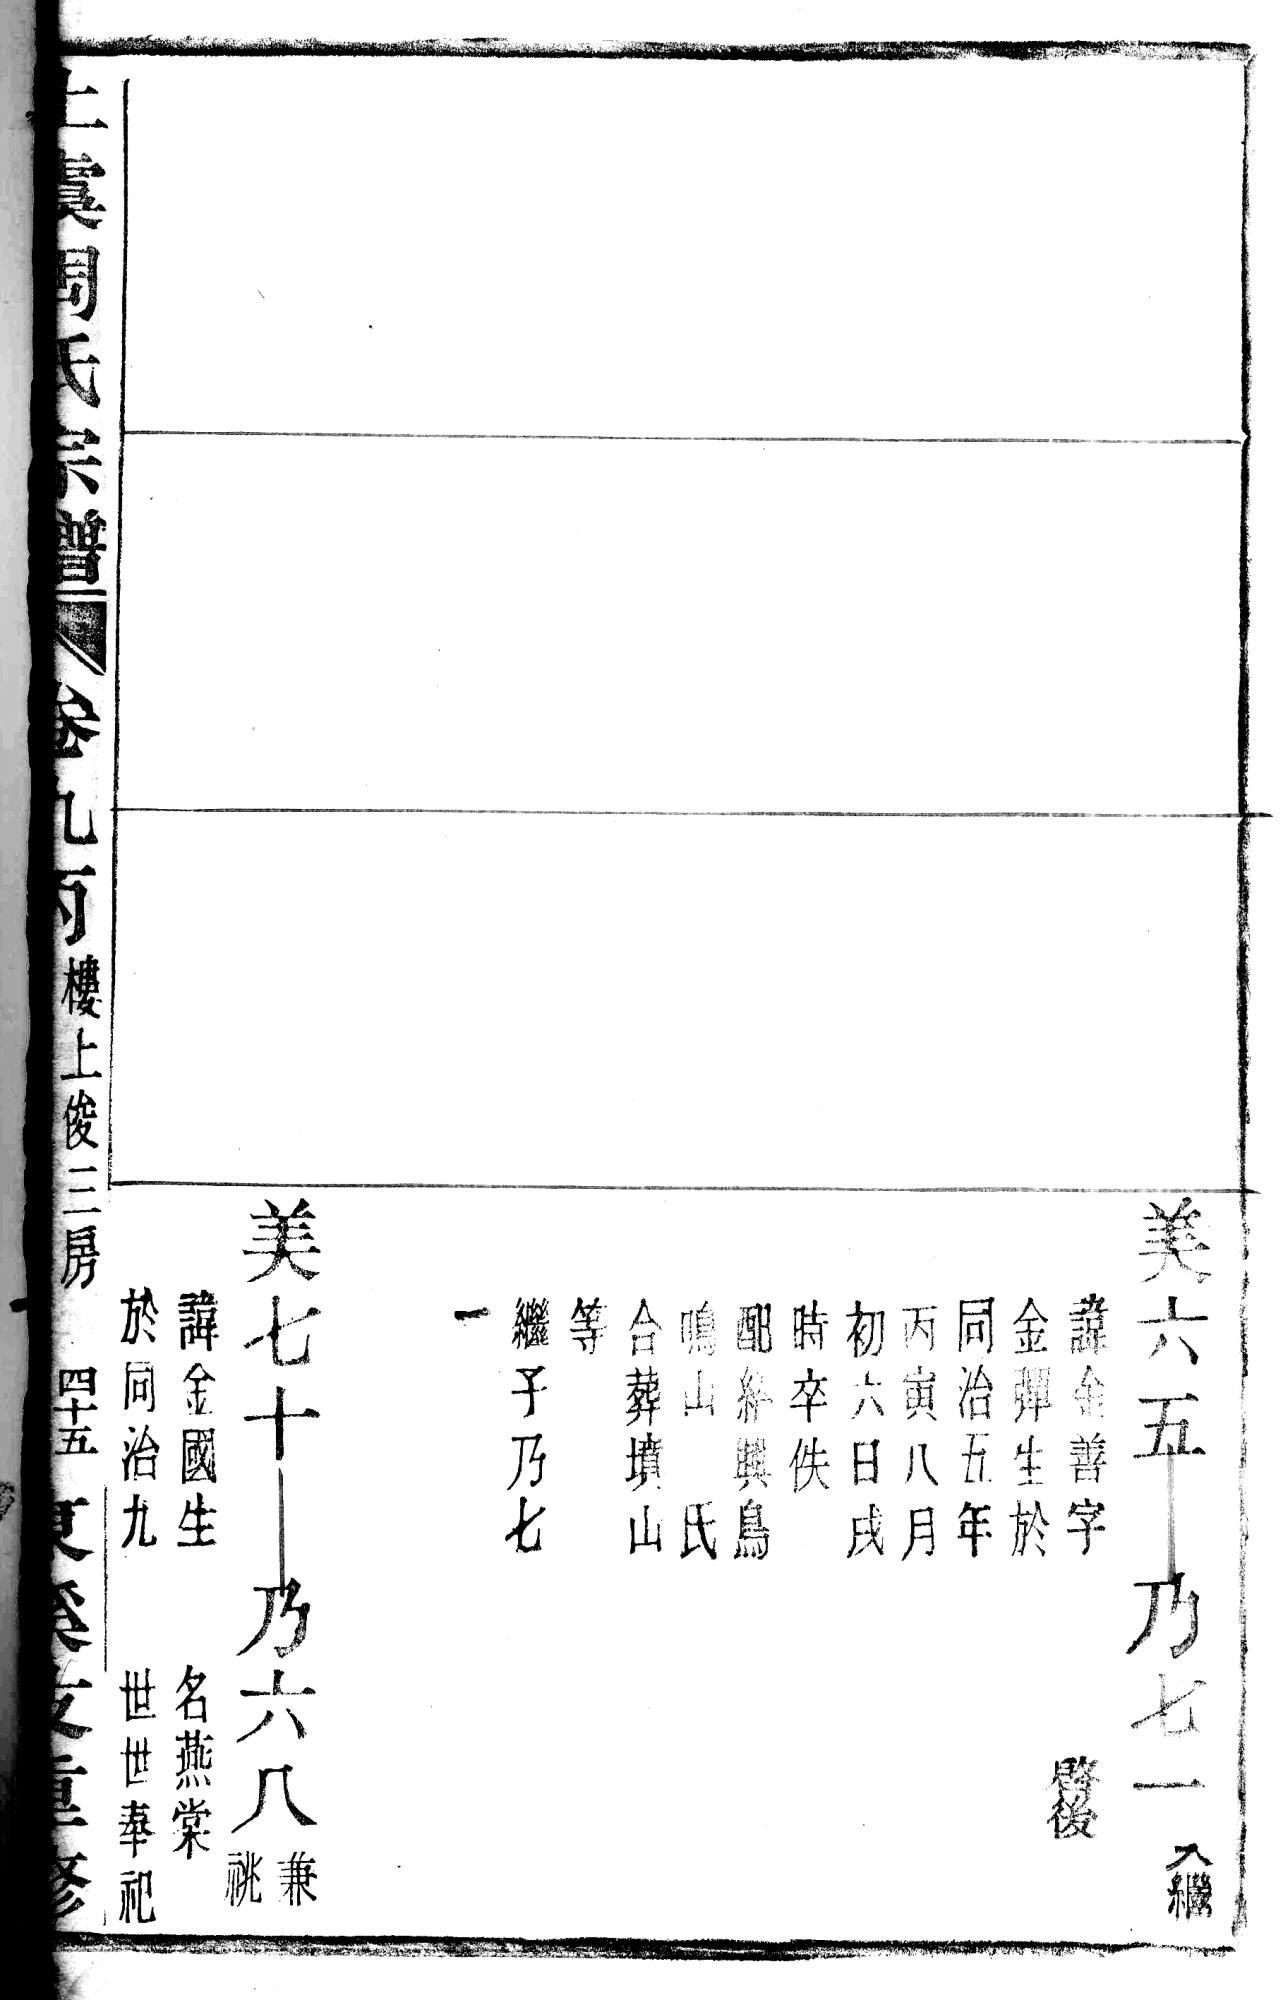 美六五
諱金善字
金彈生於
同治五年
丙寅八月
初六日戌
時卒佚
配絳興鳥
鳴山　氏
合葬墳山
等
繼子乃七
一
乃七一
入繼
啓後
美七十
諱金國生
於同治九
乃六八
兼祧
名燕棠
世世奉祀
上虞周氏宗譜
卷九丙
樓上俊三房
四十五
重修